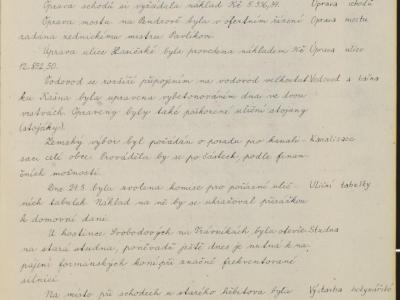 Oprava schodů si vyžádala náklad Kč 5.336,34. Oprava schodů
Oprava mostu na Ondrově byla v ofertním řízení Oprava mostu
zadána zednickému mistru Pavlíkovi.
Úprava ulice Hasičské byla provedena nákladem Kč Úprava ulice
12.852,50.
Vodovod se rozšíří připojením na vodovod velkostat Vodovod a
ku Kašna byla upravena vybetonováním dna ve dvou
vrstvách. Opraveny byly také poškozené uliční stojany
(stojáky).
Zemský výbor byl požádán o poradu pro kanali- Kanalisace
saci celé obce. Prováděla by se po částech, podle finan-
čních možností.
Dne 24.5. byla zvolena komise pro pořízení ulič- Uliční tabulky
ních tabulek. Náklad na ně by se uhražoval přirážkou
k domovní dani.
U hostince Svobodových na Trávníkách byla otevře- Studna
na stará studna, poněvadž ještě dnes je nutná k na-
pájení formanských koní při značně frekventované
silnici.
Na místo při schodech u starého hřbitova byla Výstavba